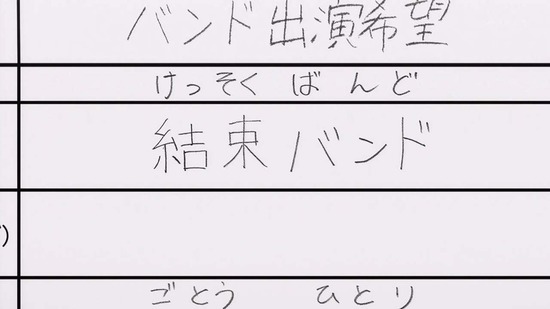 バンド出演希望
けっそく ばんど
結束バンド
)
ごとう ひとり